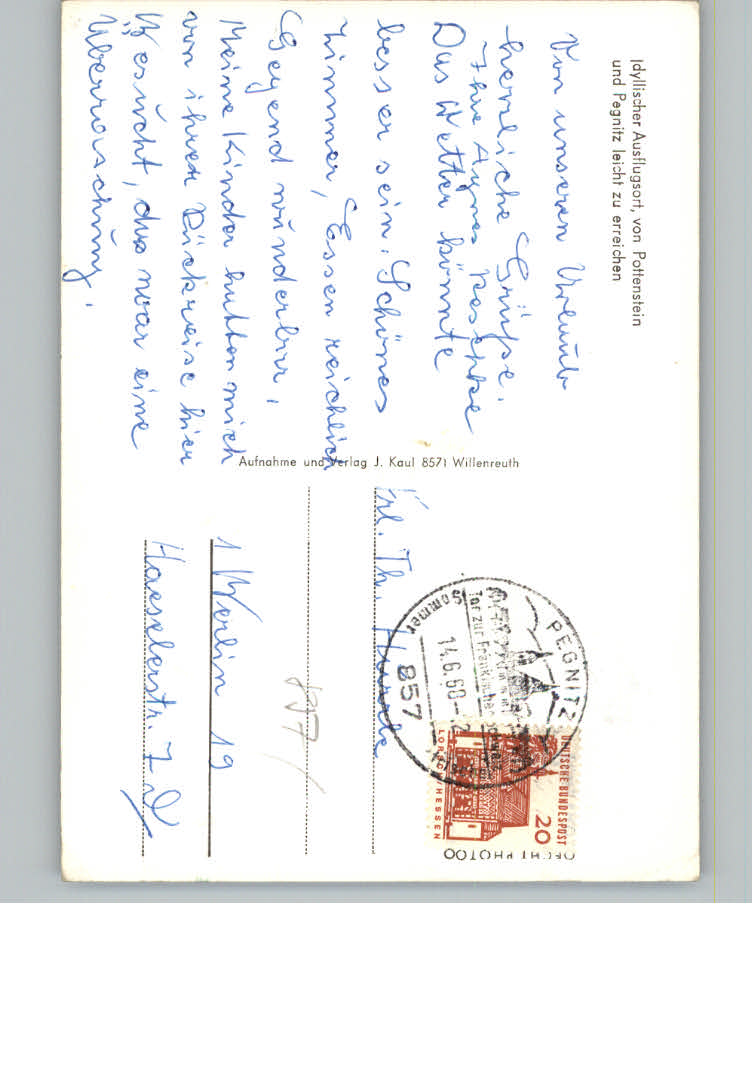 Idyllischer Ausflugsort, von Pottenstein
und Pegnitz leicht zu erreichen
Von unseren Urlaub
herrliche Grüße.
Ihre Agnes
Das Wetter könnte
besser sein. Schönes
Zimmer, Essen reichlich
Gegend wunderbar,
Meine Kinder hatten mich
von ihrer Rückreise hier
besucht, das war eine
Überraschung.
Aufnahme und Verlag J. Kaul 8571 Willenreuth
Frl. Th.
1 Berlin 19
Haeselerstr. 7
PEGNITZ
Tor zur Fränkischen Schweiz
Sommer
857
DEUTSCHE BUNDESPOST
20
LORSCH HESSEN
ECHT PHOTO